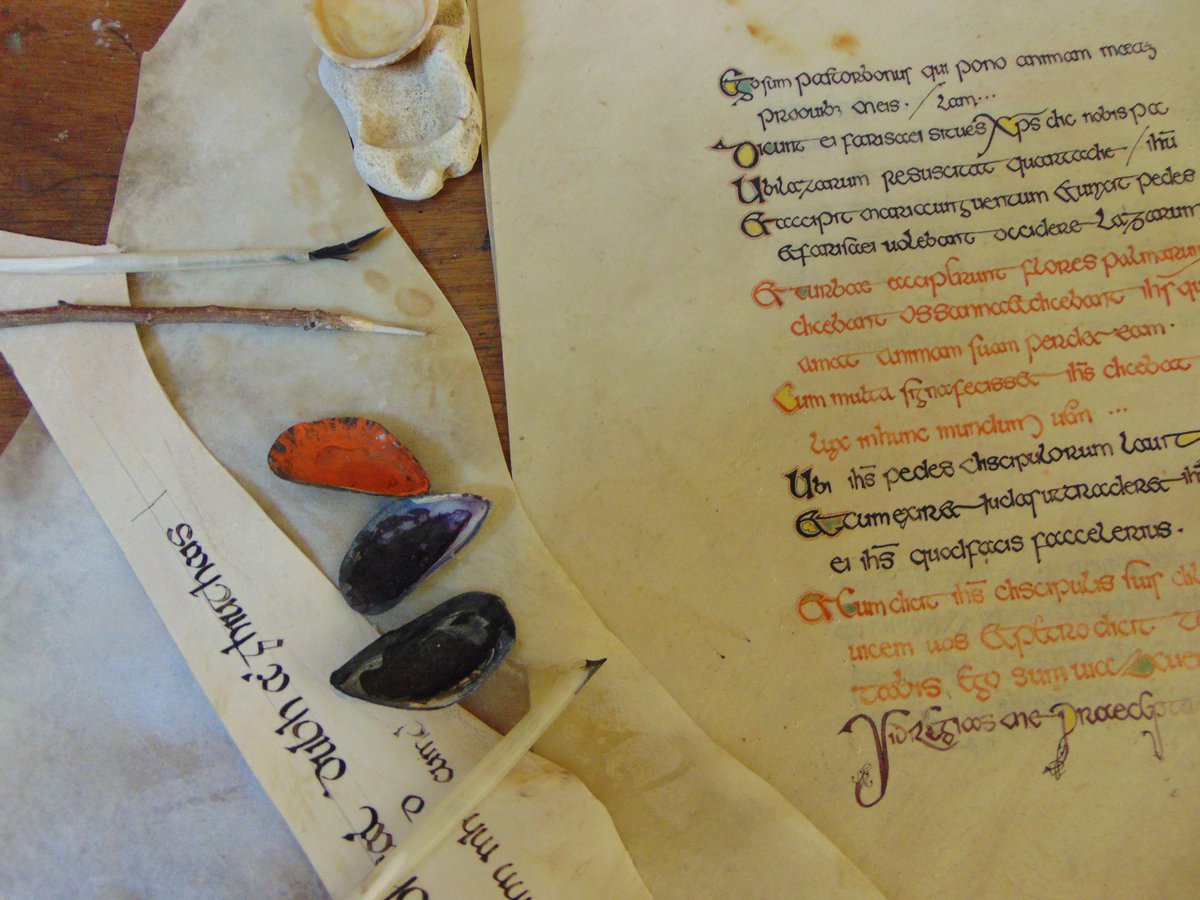 Egosum pastorbonus qui pono animam meam
proouib; meis · / Iam...
Dicunt ei farisaei situes xp̄s dic nobis pa
Ubilazarum resuscitat quartadie / ihū
&accipit mariaunguentum &unxit pedes
&farisaei uolebant occidere Lazarum
&turbae acciperunt flores palmarum
dicebant ossanna&dicebant ihs̄ qu
amat animam suam perdet eam.
Cum multa signafecisset ihs̄ dicebat
lux inhunc mundum ...
Ubi ihs̄ pedes discipulorum lauit
&cumexiret Iudasuttraderet ihs̄
ei ihs̄ quodfacis faccelerius.
&cumdicit ihs̄ discipulis suis di
uicem uos &petro dicit
tabis. Ego sum uia &uer
me praecip
dubh a' ghiuthais